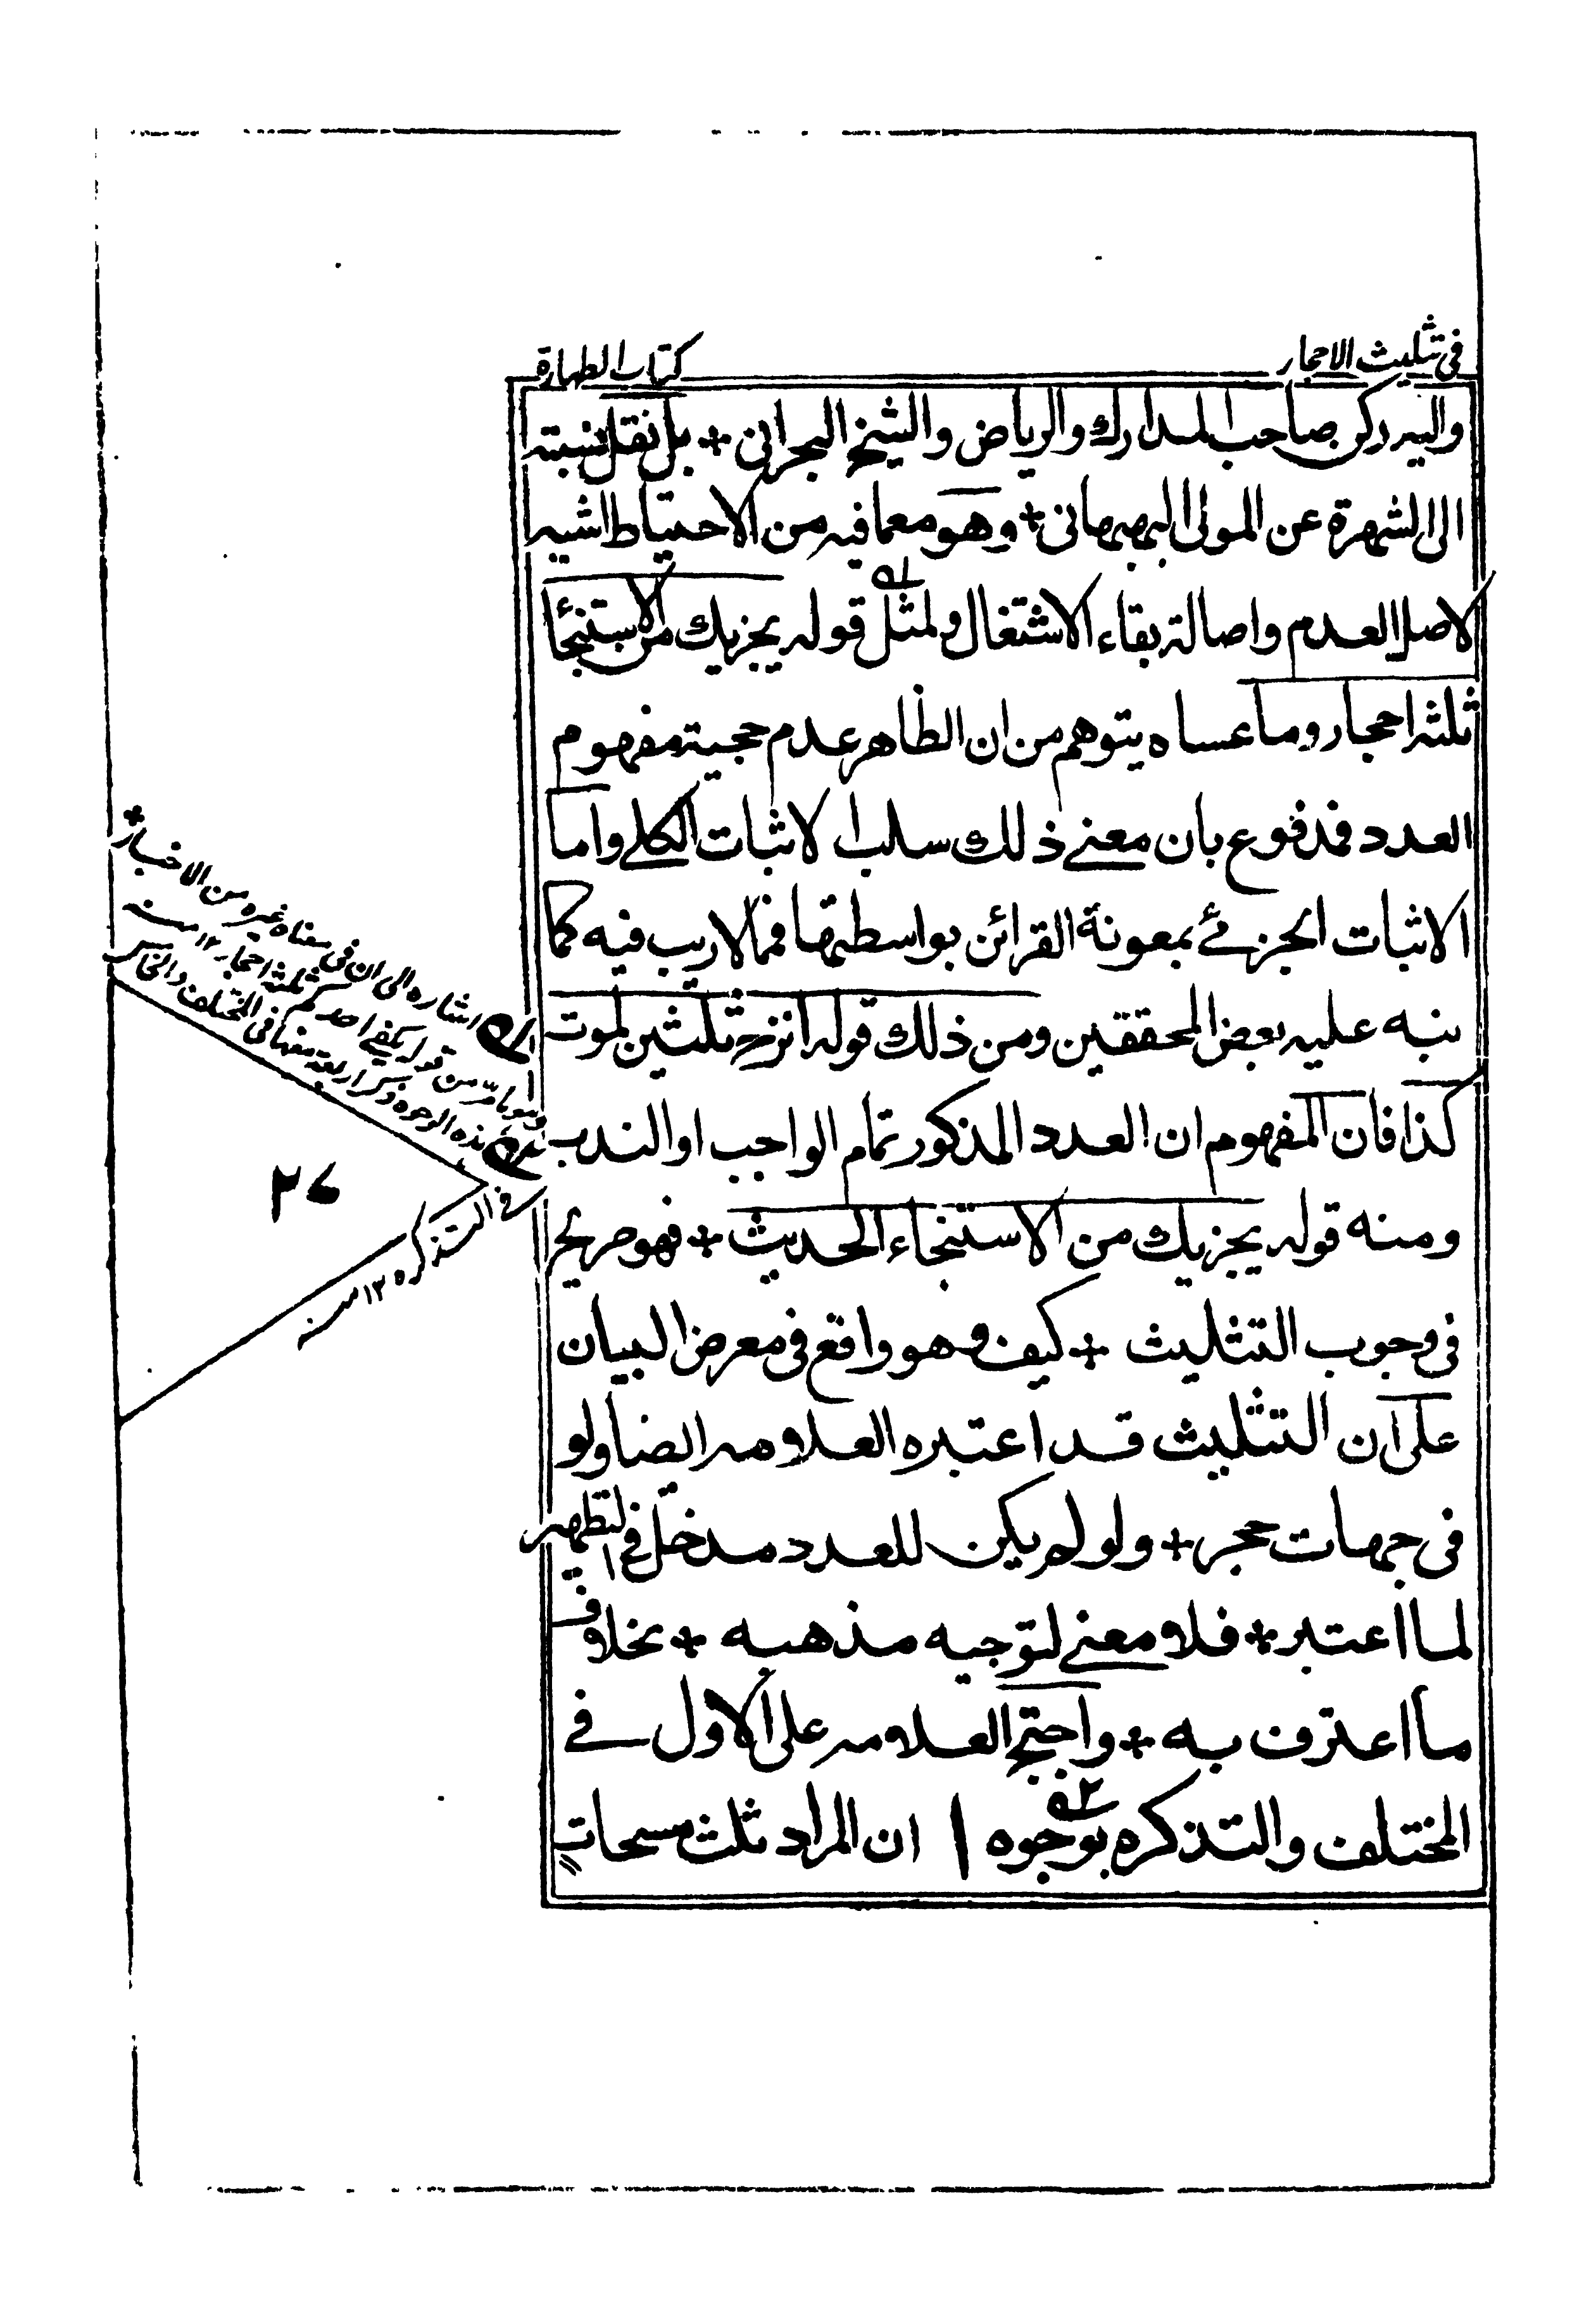 في تثليث الاحجار
كتاب الطهارة
واليه ركن صاحب المدارك والرياض والشيخ البحراني + بل نقل نسبته
الى الشهرة عن المولى البهبهاني + وهو معمافيه من الاحتياط اشبه
لاصل العدم واصالة بقاء الاشتغال ولمثل قوله يجزيك من الاستنجأ
ثلثة احجار وما عساه يتوهم من ان الظاهر عدم حجية مفهوم
العدد فمدفوع بان معنے ذلك سلب الاثبات الكلے واما
الاثبات الجزئے بمعونة القرائن بواسطتها فمما لاريب فيه كما
ينبه عليه بعض المحققين ومن ذلك قوله انزح ثلثين لموت
كذا فان المفهوم ان العدد المذكور تمام الواجب او الندب
ومنه قوله يجزيك من الاستنجاء الحديث + فهو صريح
في وجوب التثليث + كيف وهو واقع في معرض البيان
على ان التثليث قد اعتبره العلامه ايضا ولو
في جهات حجر + ولو لم يكن للعدد مدخل في التطهير
لما اعتبر + فلا معنے لتوجيه مذهبه + بخلاف
ما اعترف به + واحتج العلامه على الاول في
المختلف والتذكره بوجوه ا ان المراد ثلث مسحات
اشاره الى ان في معناه غيره من الاخبار +
وهو ما مر من قوله يكفي احدكم ثلثة احجار ١٢ منه
هذه الوجوه ذكر اربعة منها في المختلف والخامس
في التذكره ١٢ منه
٢٧